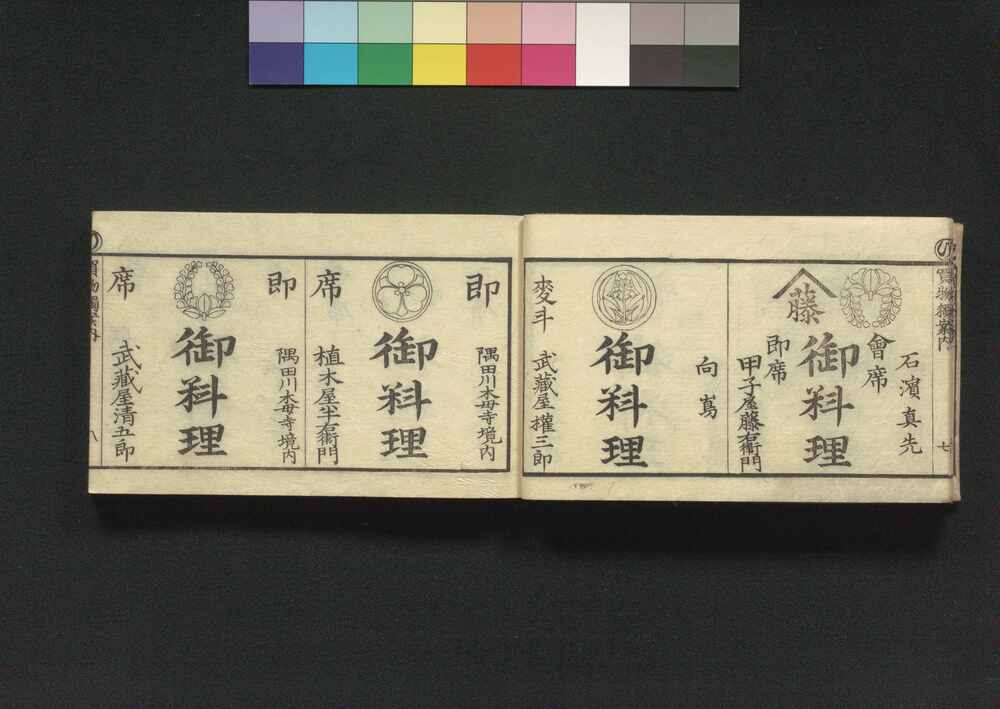 買物獨案内
七
石濱真先
會席
御料理
藤
即席
甲子屋藤右衛門
向嶌
御料理
麥斗
武藏屋權三郎
即
隅田川木母寺境内
御料理
席
植木屋半右衛門
即
隅田川木母寺境内
御料理
席
武藏屋清五郎
買物獨案内
八